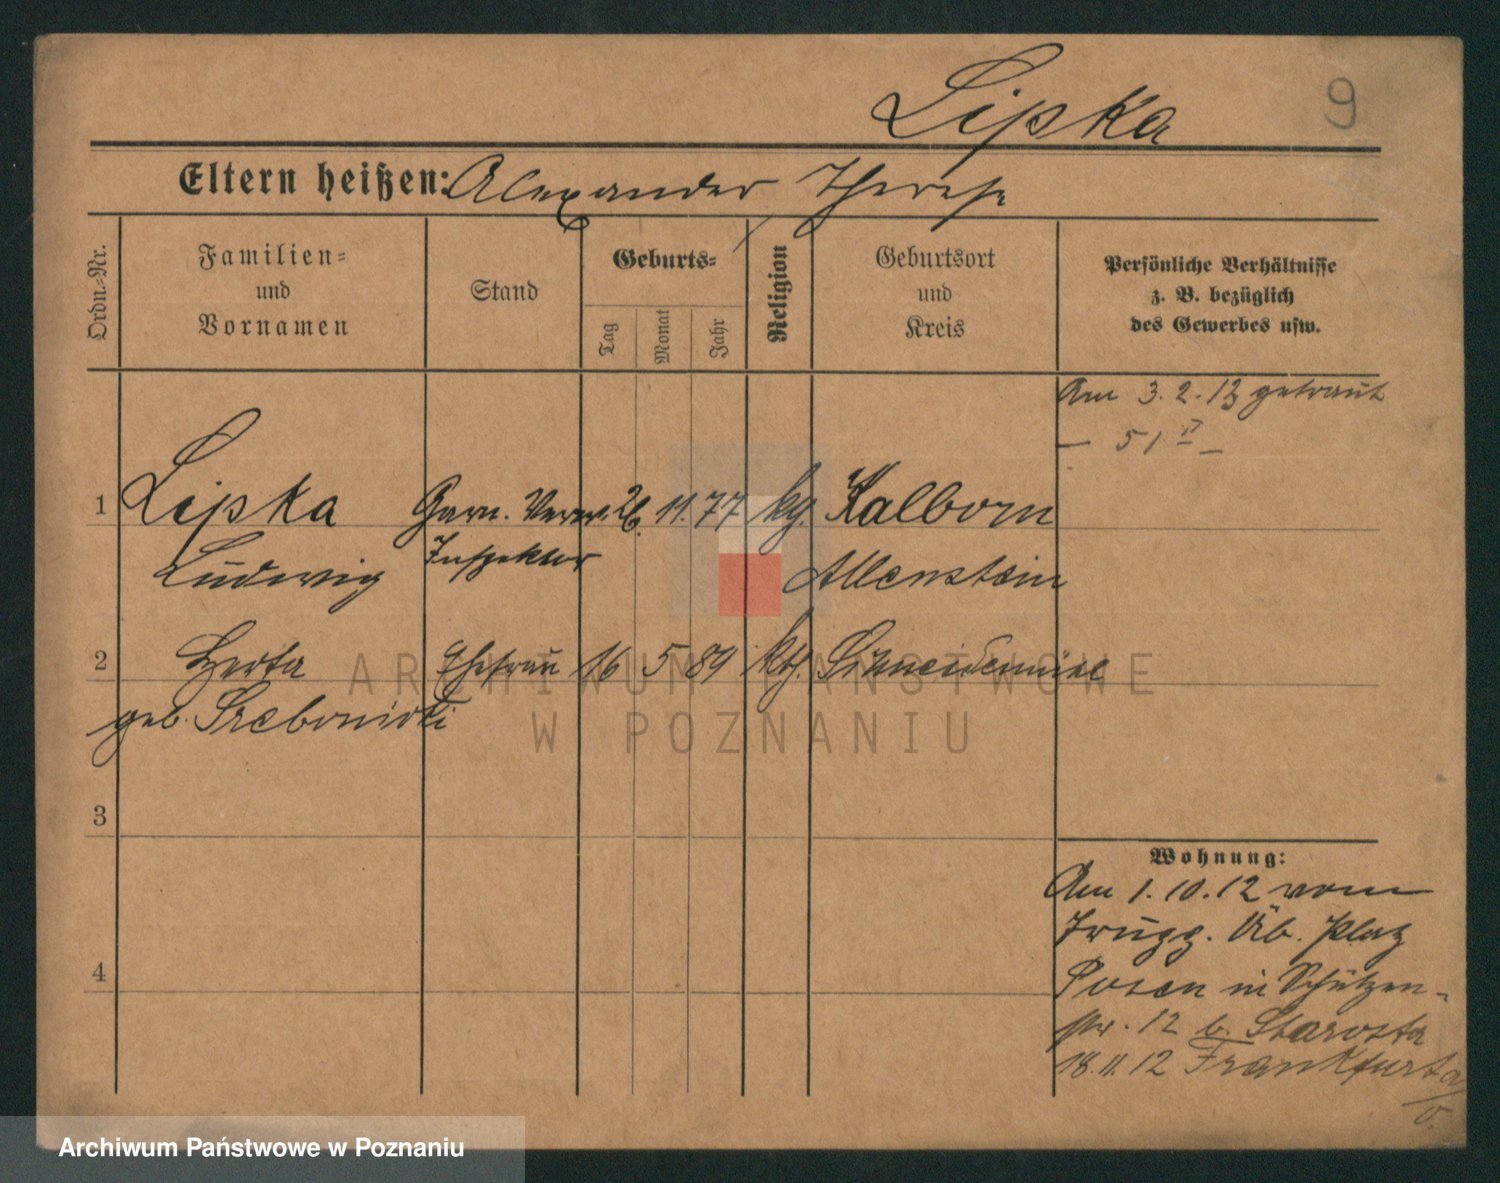 Lipka
9
Eltern heißen: Alexander, Therese
Ordn.-Nr.
Familien-
und
Vornamen
Stand
Geburts-
Tag
Monat
Jahr
Religion
Geburtsort
und
Kreis
Persönliche Verhältnisse
z. B. bezüglich
des Gewerbes usw.
Am 3. 2. 13 getraut
— 51 —
1 Lipka Garn. Verw. 26. 11. 77 kg. Kalborn
Ludwig Inspektor Allenstein
2 Herta Ehefrau 16 5 89 kth. Schneidemühl
geb. Srebonicki
3
4
Wohnung:
Am 1. 10. 12 vom
Trupp. Üb. Platz
Posen in Schützen-
str. 12 b. Starosta
18. 11. 12 Frankfurt a/O.
ARCHIWUM PAŃSTWOWE
W POZNANIU
Archiwum Państwowe w Poznaniu